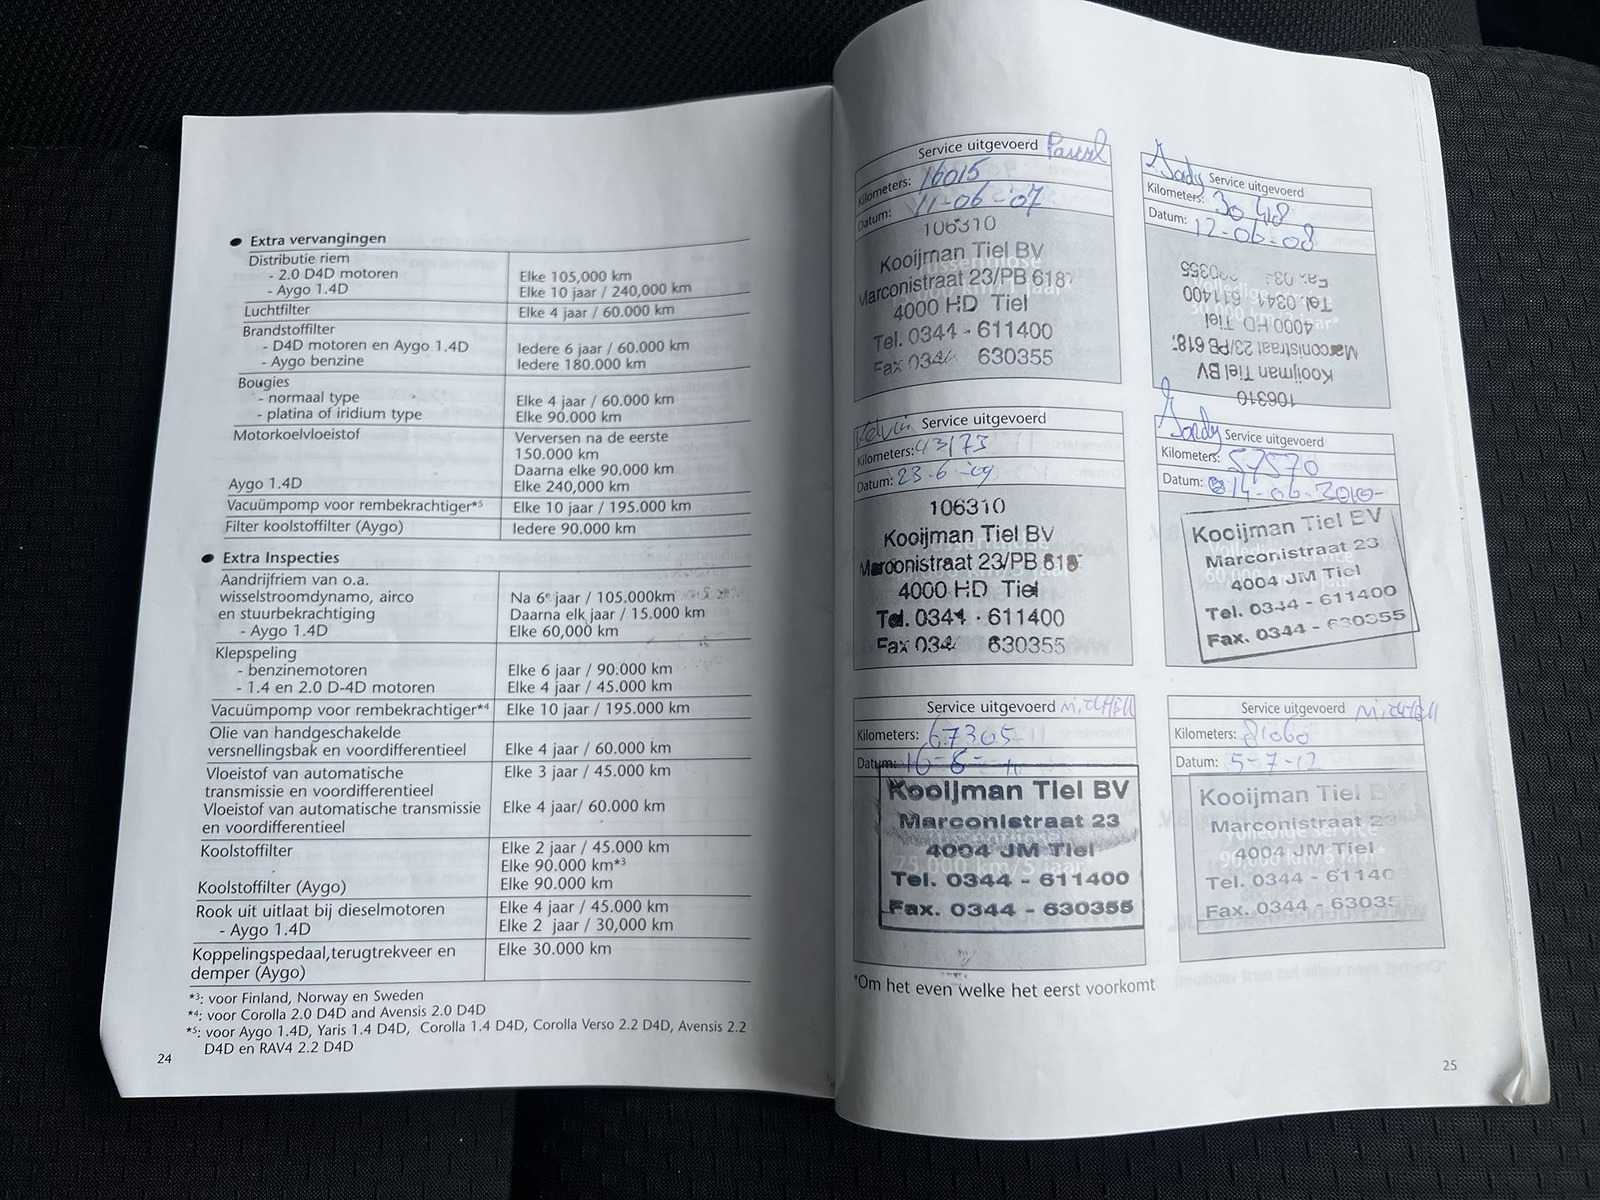 ● Extra vervangingen
Distributie riem
- 2.0 D4D motoren Elke 105,000 km
- Aygo 1.4D Elke 10 jaar / 240,000 km
Luchtfilter Elke 4 jaar / 60.000 km
Brandstoffilter
- D4D motoren en Aygo 1.4D Iedere 6 jaar / 60.000 km
- Aygo benzine Iedere 180.000 km
Bougies
- normaal type Elke 4 jaar / 60.000 km
- platina of iridium type Elke 90.000 km
Motorkoelvloeistof Verversen na de eerste
150.000 km
Daarna elke 90.000 km
Aygo 1.4D Elke 240,000 km
Vacuümpomp voor rembekrachtiger*5 Elke 10 jaar / 195.000 km
Filter koolstoffilter (Aygo) Iedere 90.000 km
● Extra Inspecties
Aandrijfriem van o.a.
wisselstroomdynamo, airco Na 6e jaar / 105.000km
en stuurbekrachtiging Daarna elk jaar / 15.000 km
- Aygo 1.4D Elke 60,000 km
Klepspeling
- benzinemotoren Elke 6 jaar / 90.000 km
- 1.4 en 2.0 D-4D motoren Elke 4 jaar / 45.000 km
Vacuümpomp voor rembekrachtiger*4 Elke 10 jaar / 195.000 km
Olie van handgeschakelde
versnellingsbak en voordifferentieel Elke 4 jaar / 60.000 km
Vloeistof van automatische Elke 3 jaar / 45.000 km
transmissie en voordifferentieel
Vloeistof van automatische transmissie Elke 4 jaar/ 60.000 km
en voordifferentieel
Koolstoffilter Elke 2 jaar / 45.000 km
Elke 90.000 km*3
Koolstoffilter (Aygo) Elke 90.000 km
Rook uit uitlaat bij dieselmotoren Elke 4 jaar / 45.000 km
- Aygo 1.4D Elke 2 jaar / 30,000 km
Koppelingspedaal,terugtrekveer en Elke 30.000 km
demper (Aygo)
*3: voor Finland, Norway en Sweden
*4: voor Corolla 2.0 D4D and Avensis 2.0 D4D
*5: voor Aygo 1.4D, Yaris 1.4 D4D, Corolla 1.4 D4D, Corolla Verso 2.2 D4D, Avensis 2.2
D4D en RAV4 2.2 D4D
24
Service uitgevoerd Pascal
Kilometers: 16015
Datum: 11-06-'07
106310
Kooijman Tiel BV
Marconistraat 23/PB 618
4000 HD Tiel
Tel. 0344 - 611400
Fax 0344 630355
Service uitgevoerd
Kilometers: 30418
Datum: 12-06-08
106310
Kooijman Tiel BV
Marconistraat 23/PB 618
4000 HD Tiel
Tel. 0341 - 611400
Service uitgevoerd
Kilometers: 43173
Datum: 23-6-09
106310
Kooijman Tiel BV
Marconistraat 23/PB 618
4000 HD Tiel
Tel. 0344 - 611400
Fax 034 630355
Service uitgevoerd
Kilometers: 57570
Datum: 14-06-2010
Kooijman Tiel BV
Marconistraat 23
4004 JM Tiel
Tel. 0344 - 611400
Fax. 0344 - 630355
Service uitgevoerd MITCHELL
Kilometers: 67305
Datum: 16-6-11
Kooijman Tiel BV
Marconistraat 23
4004 JM Tiel
75.000 km/5 jaar*
Tel. 0344 - 611400
Fax. 0344 - 630355
Service uitgevoerd MITCHELL
Kilometers: 81060
Datum: 5-7-12
Kooijman Tiel BV
Marconistraat 23
Volledige service
4004 JM Tiel
90.000 km/6 jaar*
Tel. 0344 - 61140
Fax. 0344 - 63035
*Om het even welke het eerst voorkomt
25